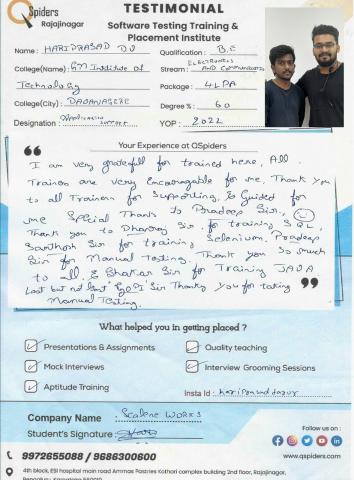 QSpiders
Rajajinagar
TESTIMONIAL
Software Testing Training &
Placement Institute
Name : HARIPRASAD D U
Qualification : B.E
College(Name) : GM Institute of
Technology
Stream : ELECTRONICS AND COMMUNICATION
Package : 4 LPA
College(City) : DAVANAGERE
Degree % : 60
Designation : Application Support
YOP : 2022
Your Experience at QSpiders
I am very gratefull for trained here, All
Trainers are very Encouragable for me, Thank you
to all Trainers for Supporting & Guided for
me Special Thank to Pradeep Sir,
Thank you to Dhanraj Sir. for training SQL,
Santhosh Sir for training Selenium, Pradeep
Sir for Manual Testing. Thank you so much
to all, & Bhaskar Sir for Training JAVA
Last but not least Gopi Sir Thank you for taking
Manual Testing.
What helped you in getting placed ?
Presentations & Assignments
Quality teaching
Mock Interviews
Interview Grooming Sessions
Aptitude Training
Insta Id :
Company Name : Scalene WORKS
Student's Signature :
Follow us on :
9972655088 / 9686300600
www.qspiders.com
4th block, ESI hospital main road Ammas Pastries Kathari complex building 2nd floor, Rajajinagar,
Bengaluru, Karnataka 560010